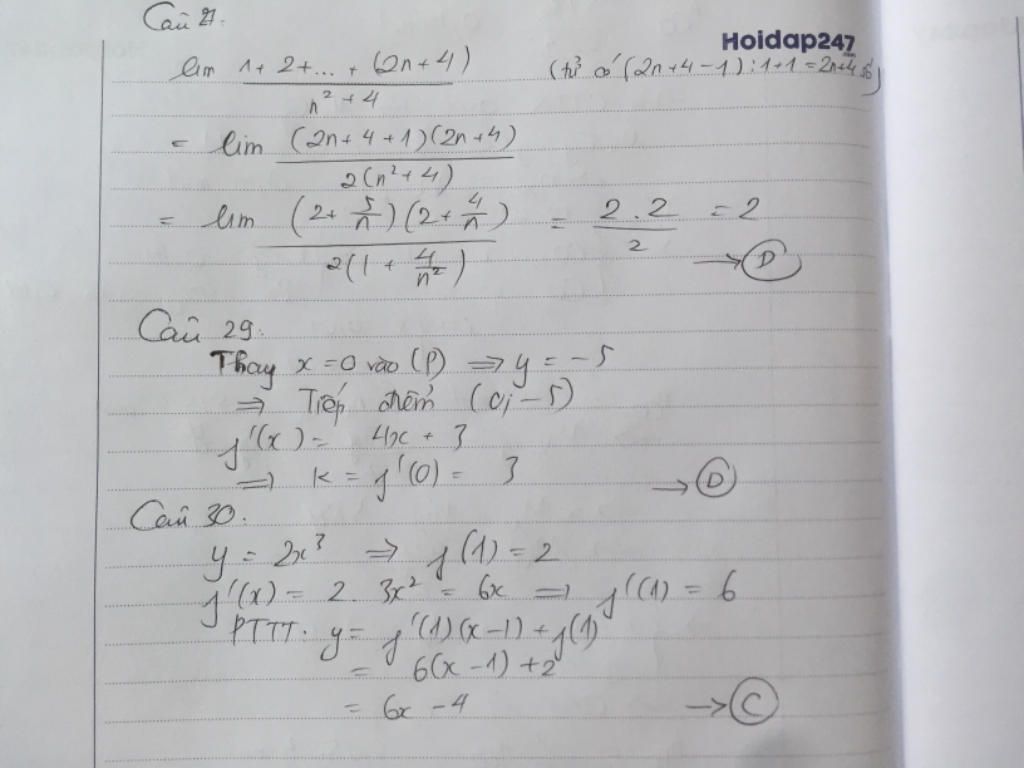 Câu 27.
Hoidap247
lim 1+2+...+(2n+4) / n²+4 (tử có (2n+4-1):1+1=2n+4 số)
= lim (2n+4+1)(2n+4) / 2(n²+4)
= lim (2+5/n)(2+4/n) / 2(1+4/n²) = 2.2 / 2 = 2 → D
Câu 29.
Thay x=0 vào (P) ⇒ y = -5
⇒ Tiếp điểm (0; -5)
f'(x) = 4x + 3
⇒ k = f'(0) = 3 → D
Câu 30.
y = 2x³ ⇒ f(1) = 2
f'(x) = 2. 3x² = 6x ⇒ f'(1) = 6
PTTT. y = f'(1)(x-1) + f(1)
= 6(x-1)+2
= 6x - 4 → C